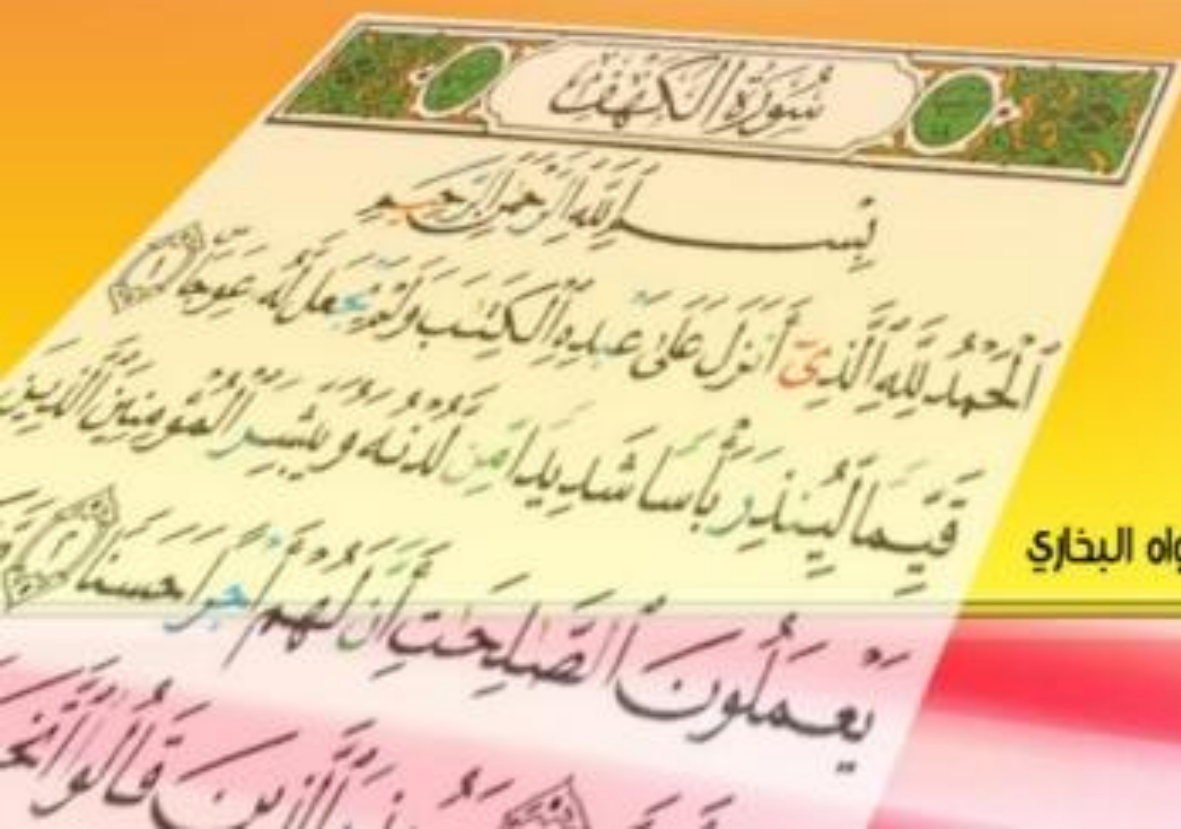 سُورَةُ الْكَهْفِ
بِسْمِ اللَّهِ الرَّحْمَٰنِ الرَّحِيمِ
الْحَمْدُ لِلَّهِ الَّذِي أَنزَلَ عَلَىٰ عَبْدِهِ الْكِتَٰبَ وَلَمْ يَجْعَل لَّهُ عِوَجَا ۜ ١
قَيِّمًا لِّيُنذِرَ بَأْسًا شَدِيدًا مِّن لَّدُنْهُ وَيُبَشِّرَ الْمُؤْمِنِينَ الَّذِينَ
يَعْمَلُونَ الصَّٰلِحَٰتِ أَنَّ لَهُمْ أَجْرًا حَسَنًا ٢
الَّذِينَ قَالُوا
البخاري